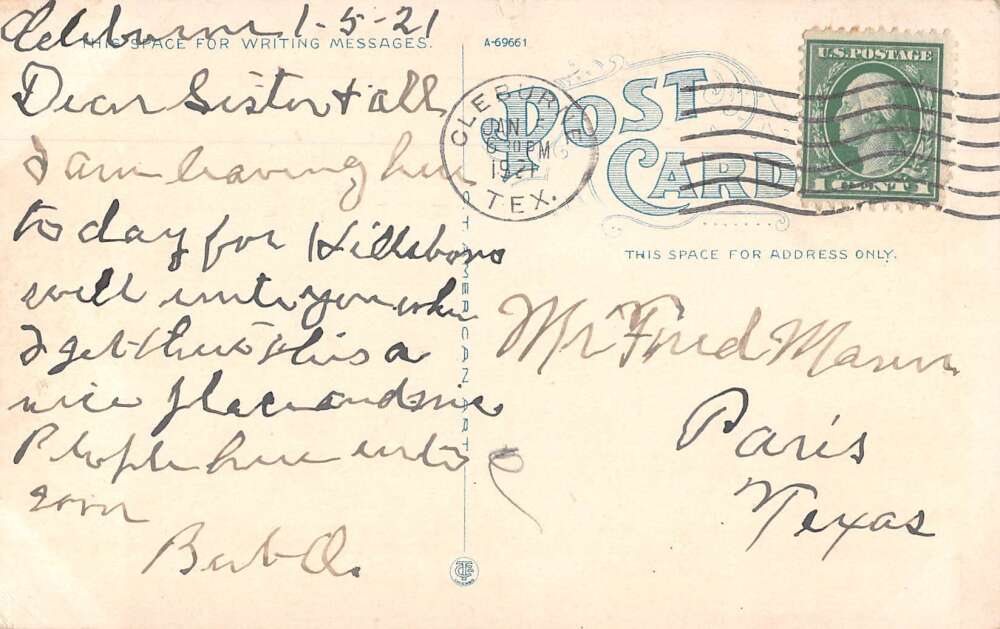 Cleburne 1-5-21
THIS SPACE FOR WRITING MESSAGES.
Dear Sister & all
I am leaving here
to day for Hillsboro
will write you when
I get there this a
nice place and nice
People here write
soon
Bert O.
A-69661
C.T. AMERICAN ART
POST
CARD
CLEBURNE
JAN 5
6 30 PM
1921
TEX.
U.S. POSTAGE
1 CENT 1
THIS SPACE FOR ADDRESS ONLY.
Mr Fred Mann
Paris
Texas